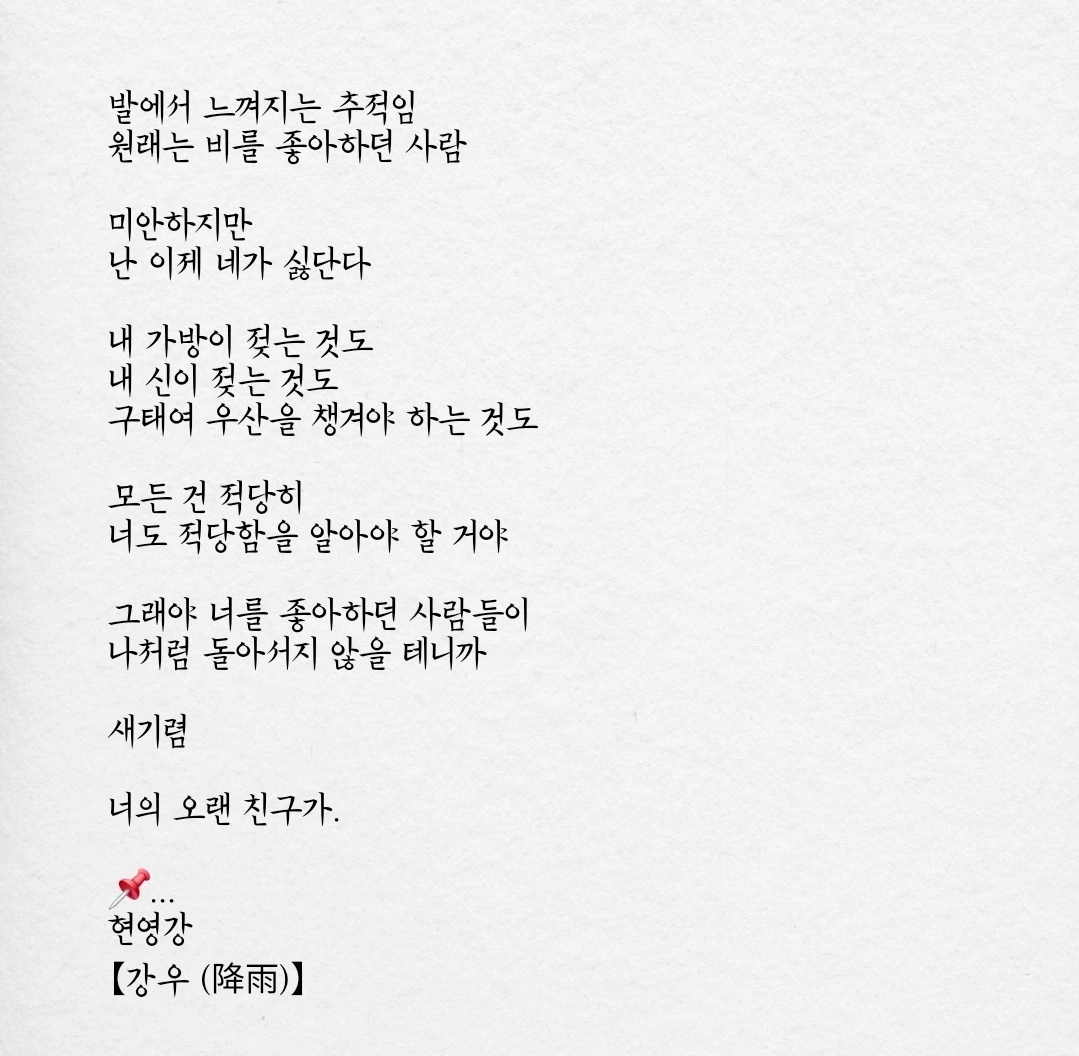 발에서 느껴지는 추적임
원래는 비를 좋아하던 사람
미안하지만
난 이제 네가 싫단다
내 가방이 젖는 것도
내 신이 젖는 것도
구태여 우산을 챙겨야 하는 것도
모든 건 적당히
너도 적당함을 알아야 할 거야
그래야 너를 좋아하던 사람들이
나처럼 돌아서지 않을 테니까
새기렴
너의 오랜 친구가.
📌...
현영강
【강우 (降雨)】